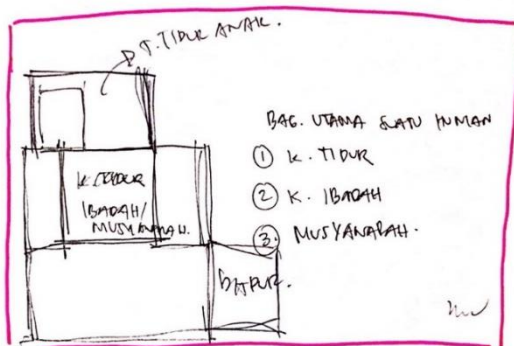 T. TIDUR ANAK.
K. TIDUR
IBADAH/
MUSYAWARAH.
DAPUR.
BAG. UTAMA SUATU HUNIAN
① K. TIDUR
② K. IBADAH
③. MUSYAWARAH.